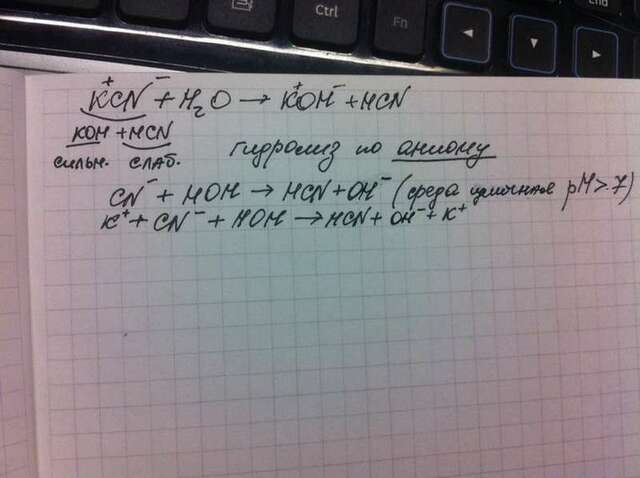 Ctrl
Fn
End
K⁺CN⁻ + H₂O → K⁺OH⁻ + HCN
KOH + HCN
сильн. слаб. гидролиз по аниону
CN⁻ + HOH → HCN + OH⁻ (среда щелочная pH > 7)
K⁺ + CN⁻ + HOH → HCN + OH⁻ + K⁺